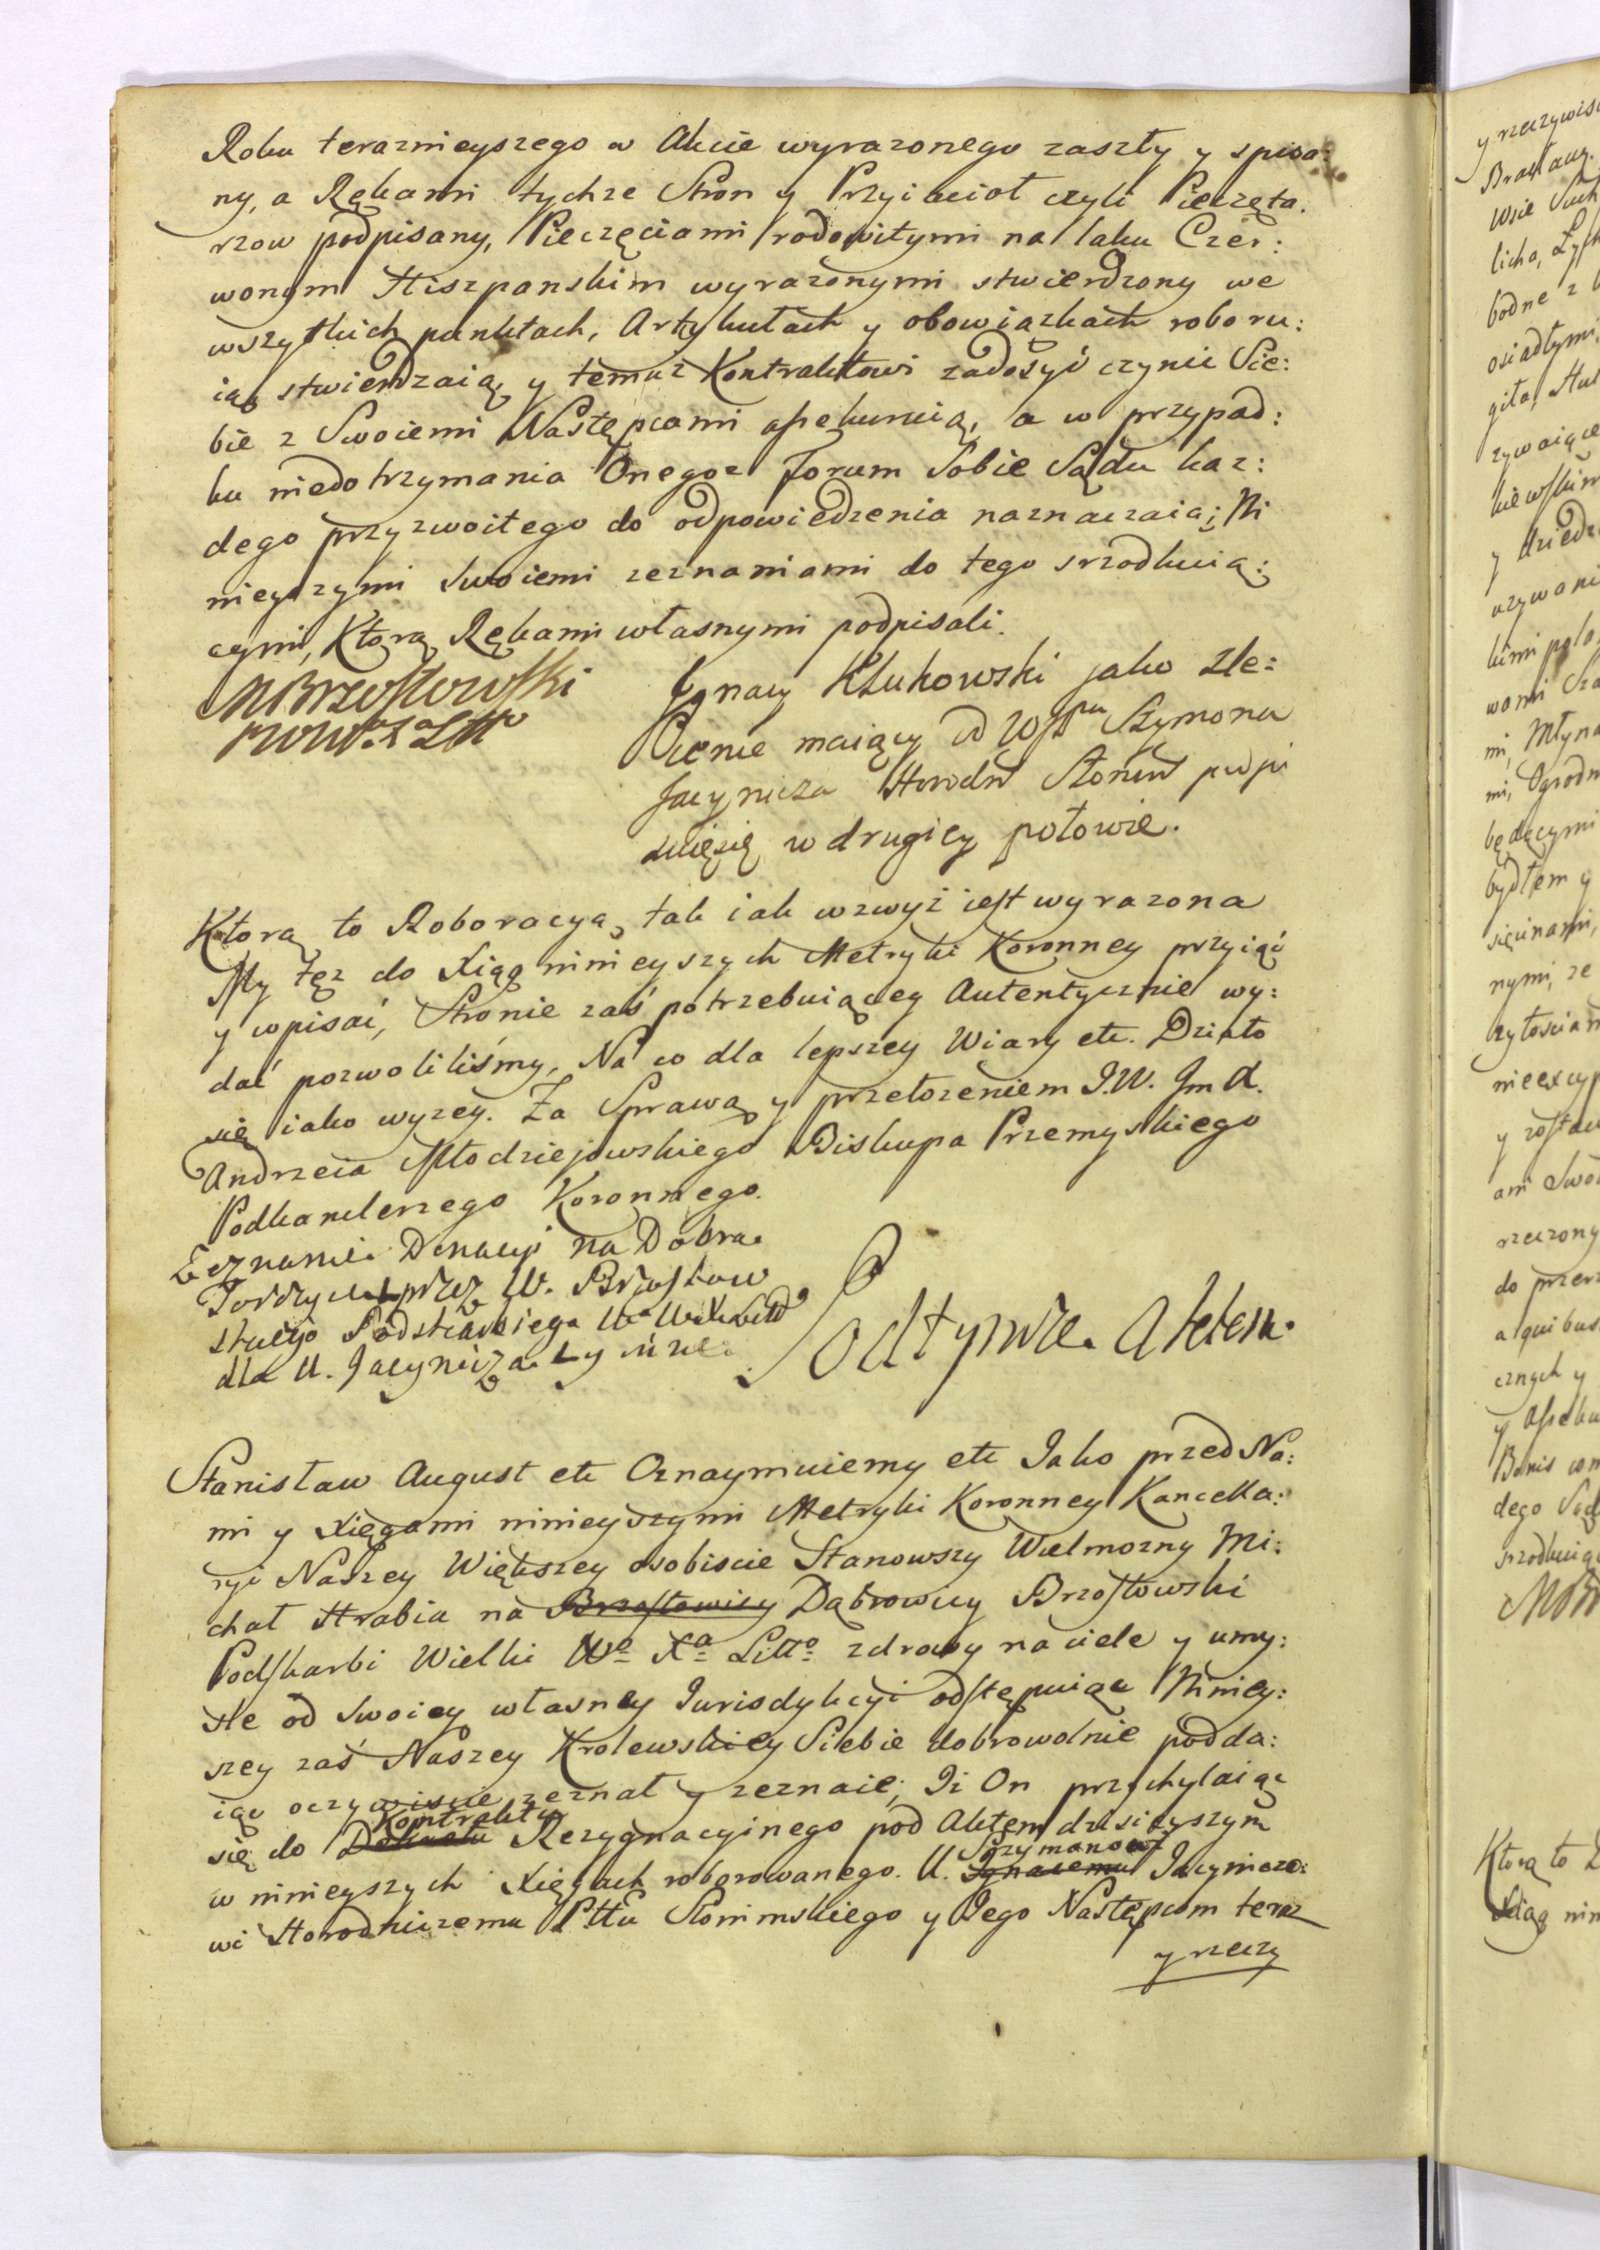 Roku teraznieyszego w Akcie wyrazonego zaszły y spisa:
ny, a Rękami tychze Stron y Przyiacioł czyli Pieczęta.
rzow podpisany, Pieczęciami rodowitymi na laku Czer:
wonym Hiszpanskim wyrazonymi stwierdzony we
wszytkich punktach, Artykułach y obowiązkach roboru:
ią, stwierdzaią, y temuz Kontraktowi zadosyć czynić Sie:
bie z Swoiemi Następcami assekuruią, a w przypad:
ku niedotrzymania Onegoz Forum Sobie Sądu kaz:
dego przyzwoitego do odpowiedzenia naznaczaią; Ni
nieyszymi Swoiemi zeznaniami do tego srzodkuią:
cymi, Ktorą Rękami własnymi podpisali.
MBrzostowski
Ignacy Klukowski jako zle:
cenie maiący od WJPna Szymona
Jacynicza Horodn Słonim podpi
suięsię w drugiey połowie.
Ktorą to Roboracyą, tak iak wzwyż iest wyrazona
My tęz do Xiąg ninieyszych Metryki Koronney przyiąć
y wpisać, Stronie zaś potrzebuiącey Autentycznie wy:
dać pozwoliliśmy, Na co dla lepszey Wiary etc. Działo
się iako wyzey. Za Sprawą y przełozeniem J.W. Jm X.
Andrzeia Młodziejowskiego Biskupa Przemyskiego
Podkanclerzego Koronnego.
Zeznanie Donacyi na Dobra
przez W. Brzostow
skiego Podskarbiego
dla U. Jacynicza
Sołtyms Actem.
Stanisław August etc Oznaymuiemy etc Jako przed Na:
mi y Xięgami ninieyszymi Metryki Koronney Kancella:
ryi Naszey Większey osobiscie Stanowszy Wielmozny Mi:
chał Hrabia na Brzostowicy Dąbrowicy Brzostowski
Podskarbi Wielki Wo Xa Litto zdrowy na ciele y umy:
śle od Swoiey własney Jurisdykcyi odstępuiąc Niniey:
szey zaś Naszey Krolewskiey Siebie dobrowolnie podda:
iąc oczywiscie zeznał y zeznaie; Iz On przychylaiąc
Kontraktu
się do Dekretu Rezygnacyinego pod Aktem dzisieyszym
Szymonowi
w ninieyszych Xięgach roborowanego. U. Ignacemu Jacyniczo:
wi Horodniczemu Pttu Słonimskiego y Jego Następcom teraz
y rzeczy